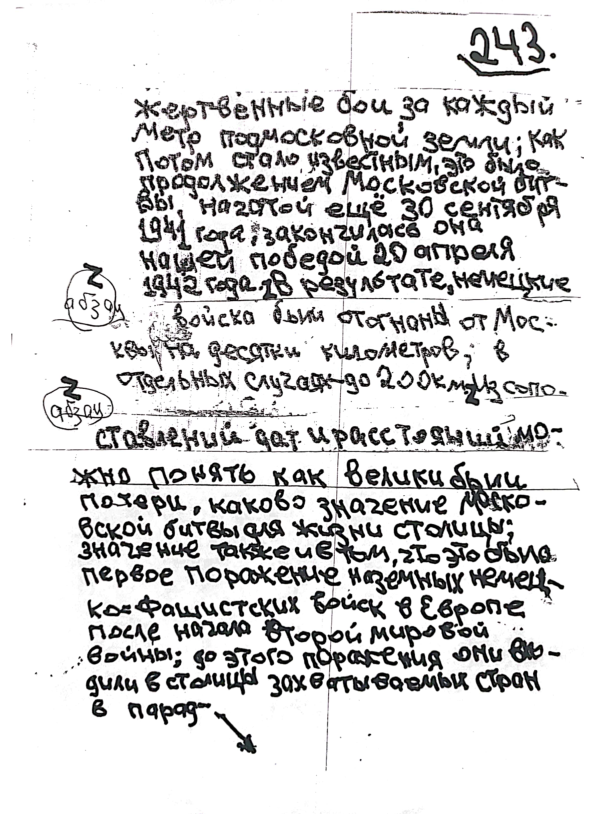 243.
жертвенные бои за каждый
метр подмосковной земли; как
потом стало известным, это было
продолжением Московской бит-
вы, начатой ещё 30 сентября
1941 года; закончилась она
нашей победой 20 апреля
1942 года. В результате, немецкие
Z
абзац
войска были отогнаны от Мос-
квы на десятки километров, в
отдельных случаях-до 200км. Из сопо-
Z
абзац
ставлений дат и расстояний мо-
жно понять как велики были
потери, каково значение моско-
вской битвы для жизни столицы;
значение также и в том, что это было
первое поражение наземных немец-
ко=фашистских войск в Европе
после начала второй мировой
войны; до этого поражения они вхо-
дили в столицы захватываемых стран
в парад-